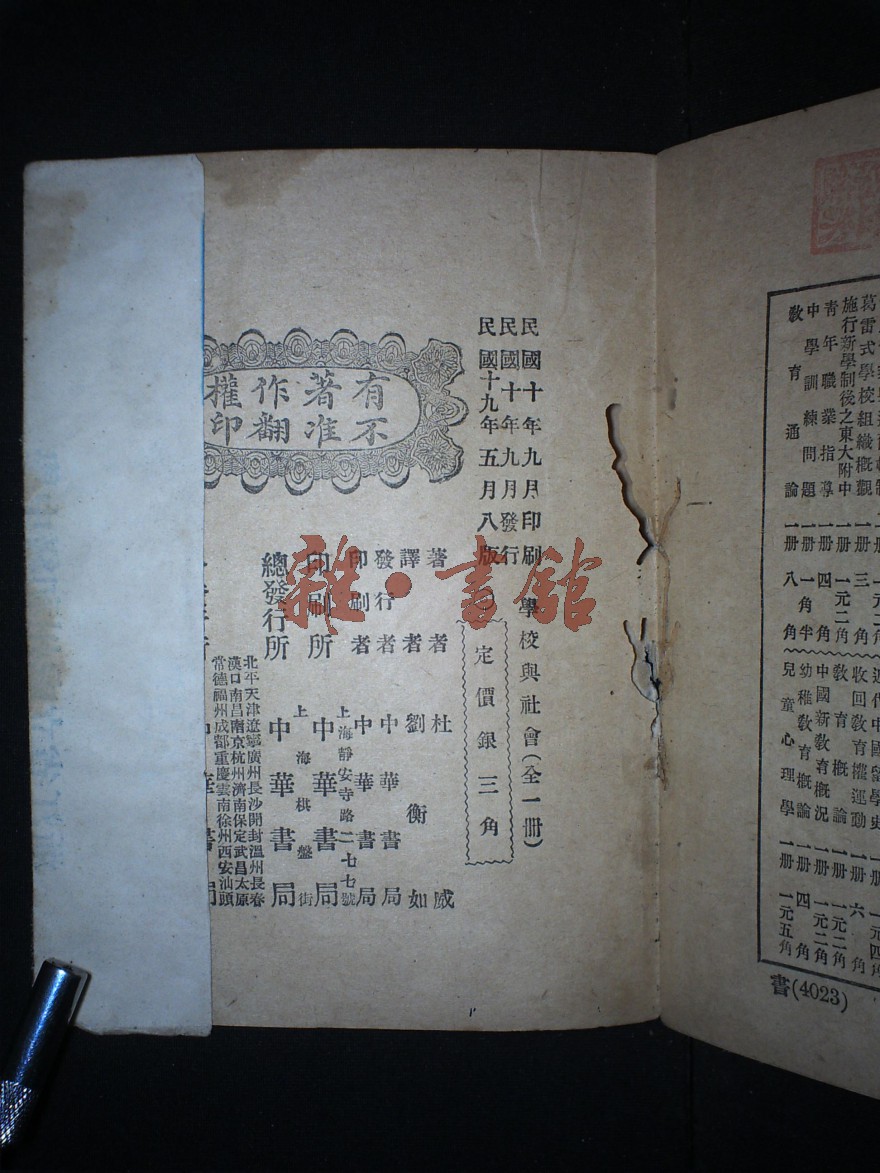 民國十年九月印刷
民國十年九月發行
民國十九年五月八版
學校與社會（全一冊）
定價銀三角
有著作權
不准翻印
著者 杜威
譯者 劉衡如
發行者 中華書局
印刷者 中華書局
上海靜安寺路二七七號
印刷所 中華書局
上海棋盤街
總發行所 中華書局
北平天津遼寧廣州長沙開封溫州長春
漢口南昌南京杭州濟南保定武昌太原
常德福州成都重慶雲南徐州西安汕頭
雜·書館
葛雷式學校組織概觀 一冊 三角
施行新學制後之東大附中 一冊 一元二角
青年職業指導 一冊 四角
中學訓練問題 一冊 一角半
教育通論 一冊 八角
近代中國留學史
收回教育權運動 一冊 六角
教育概論 一冊 一元二角
中國新教育概況 一冊 一元二角
幼稚教育概論 一冊 四角
兒童心理學 一冊 一元五角
書(4023)